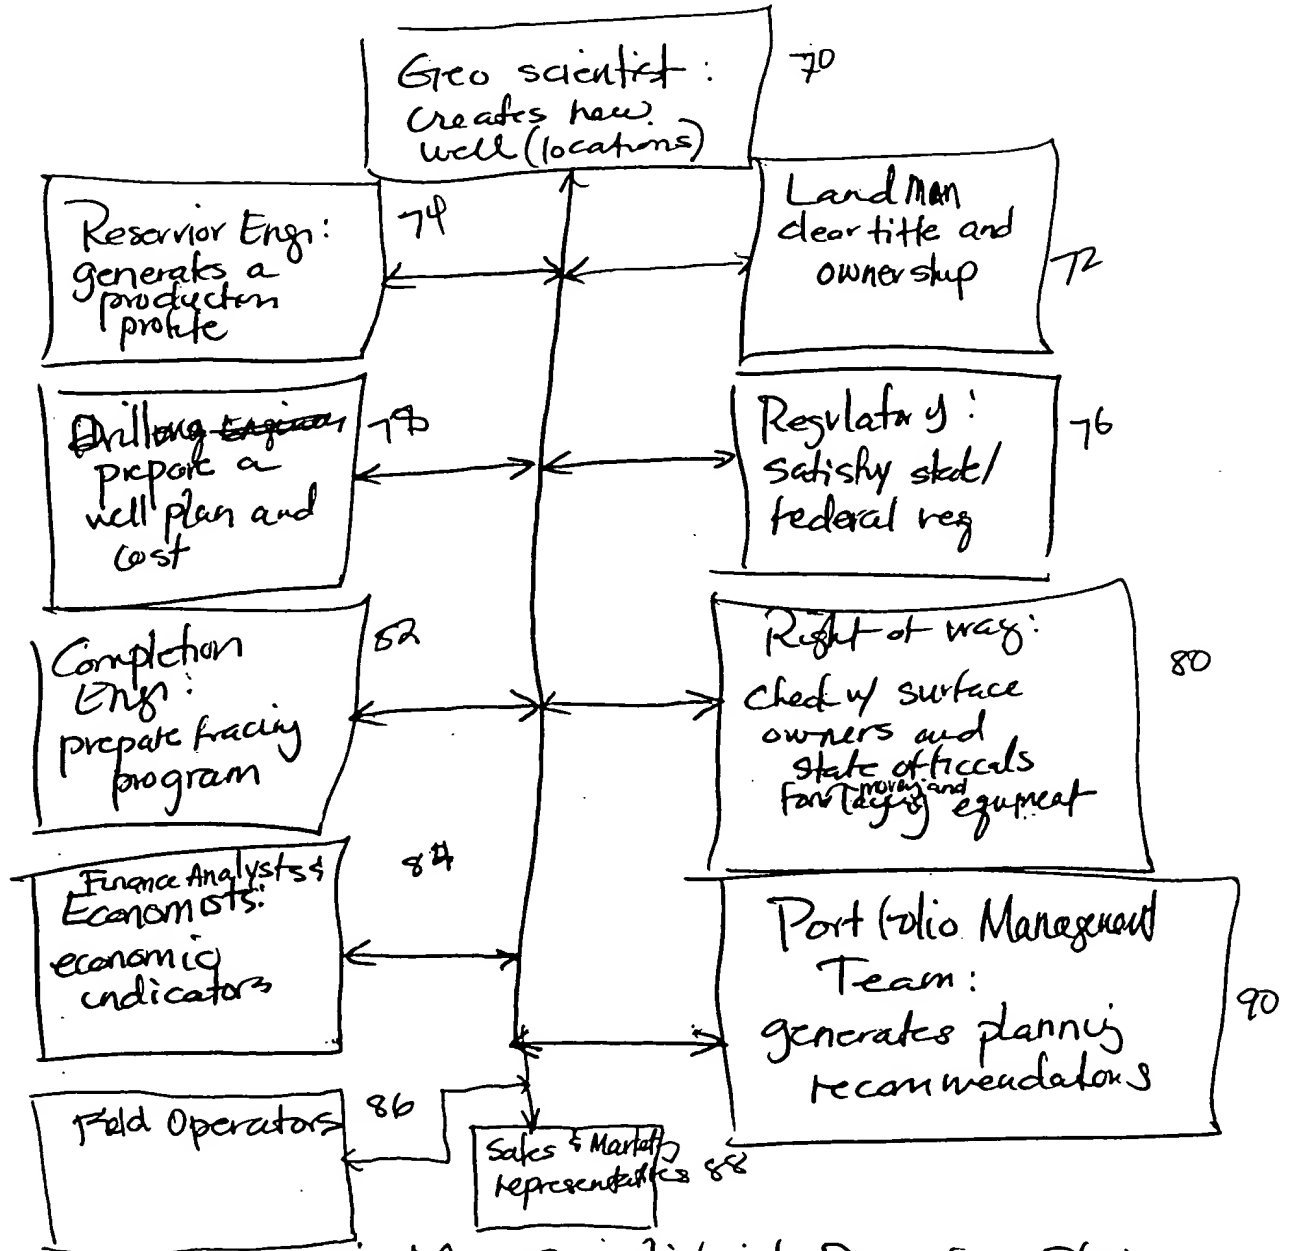 Geo scientist :
creates new
well (locations)
70
Reservior Eng:
generates a
production
profile
74
Land Man
clear title and
ownership
72
Drilling Engineer
prepare a
well plan and
cost
78
Regulatory :
satisfy state/
federal reg
76
Completion
Eng:
prepate fracing
program
82
Right of way:
check w/ surface
owners and
state officcals
moving and
equpment
80
Finance Analysts &
Economists:
economic
indicators
84
Portfolio Management
Team:
generates planning
recommendations
90
Field Operators
86
Sales & Marketg
representatives 88